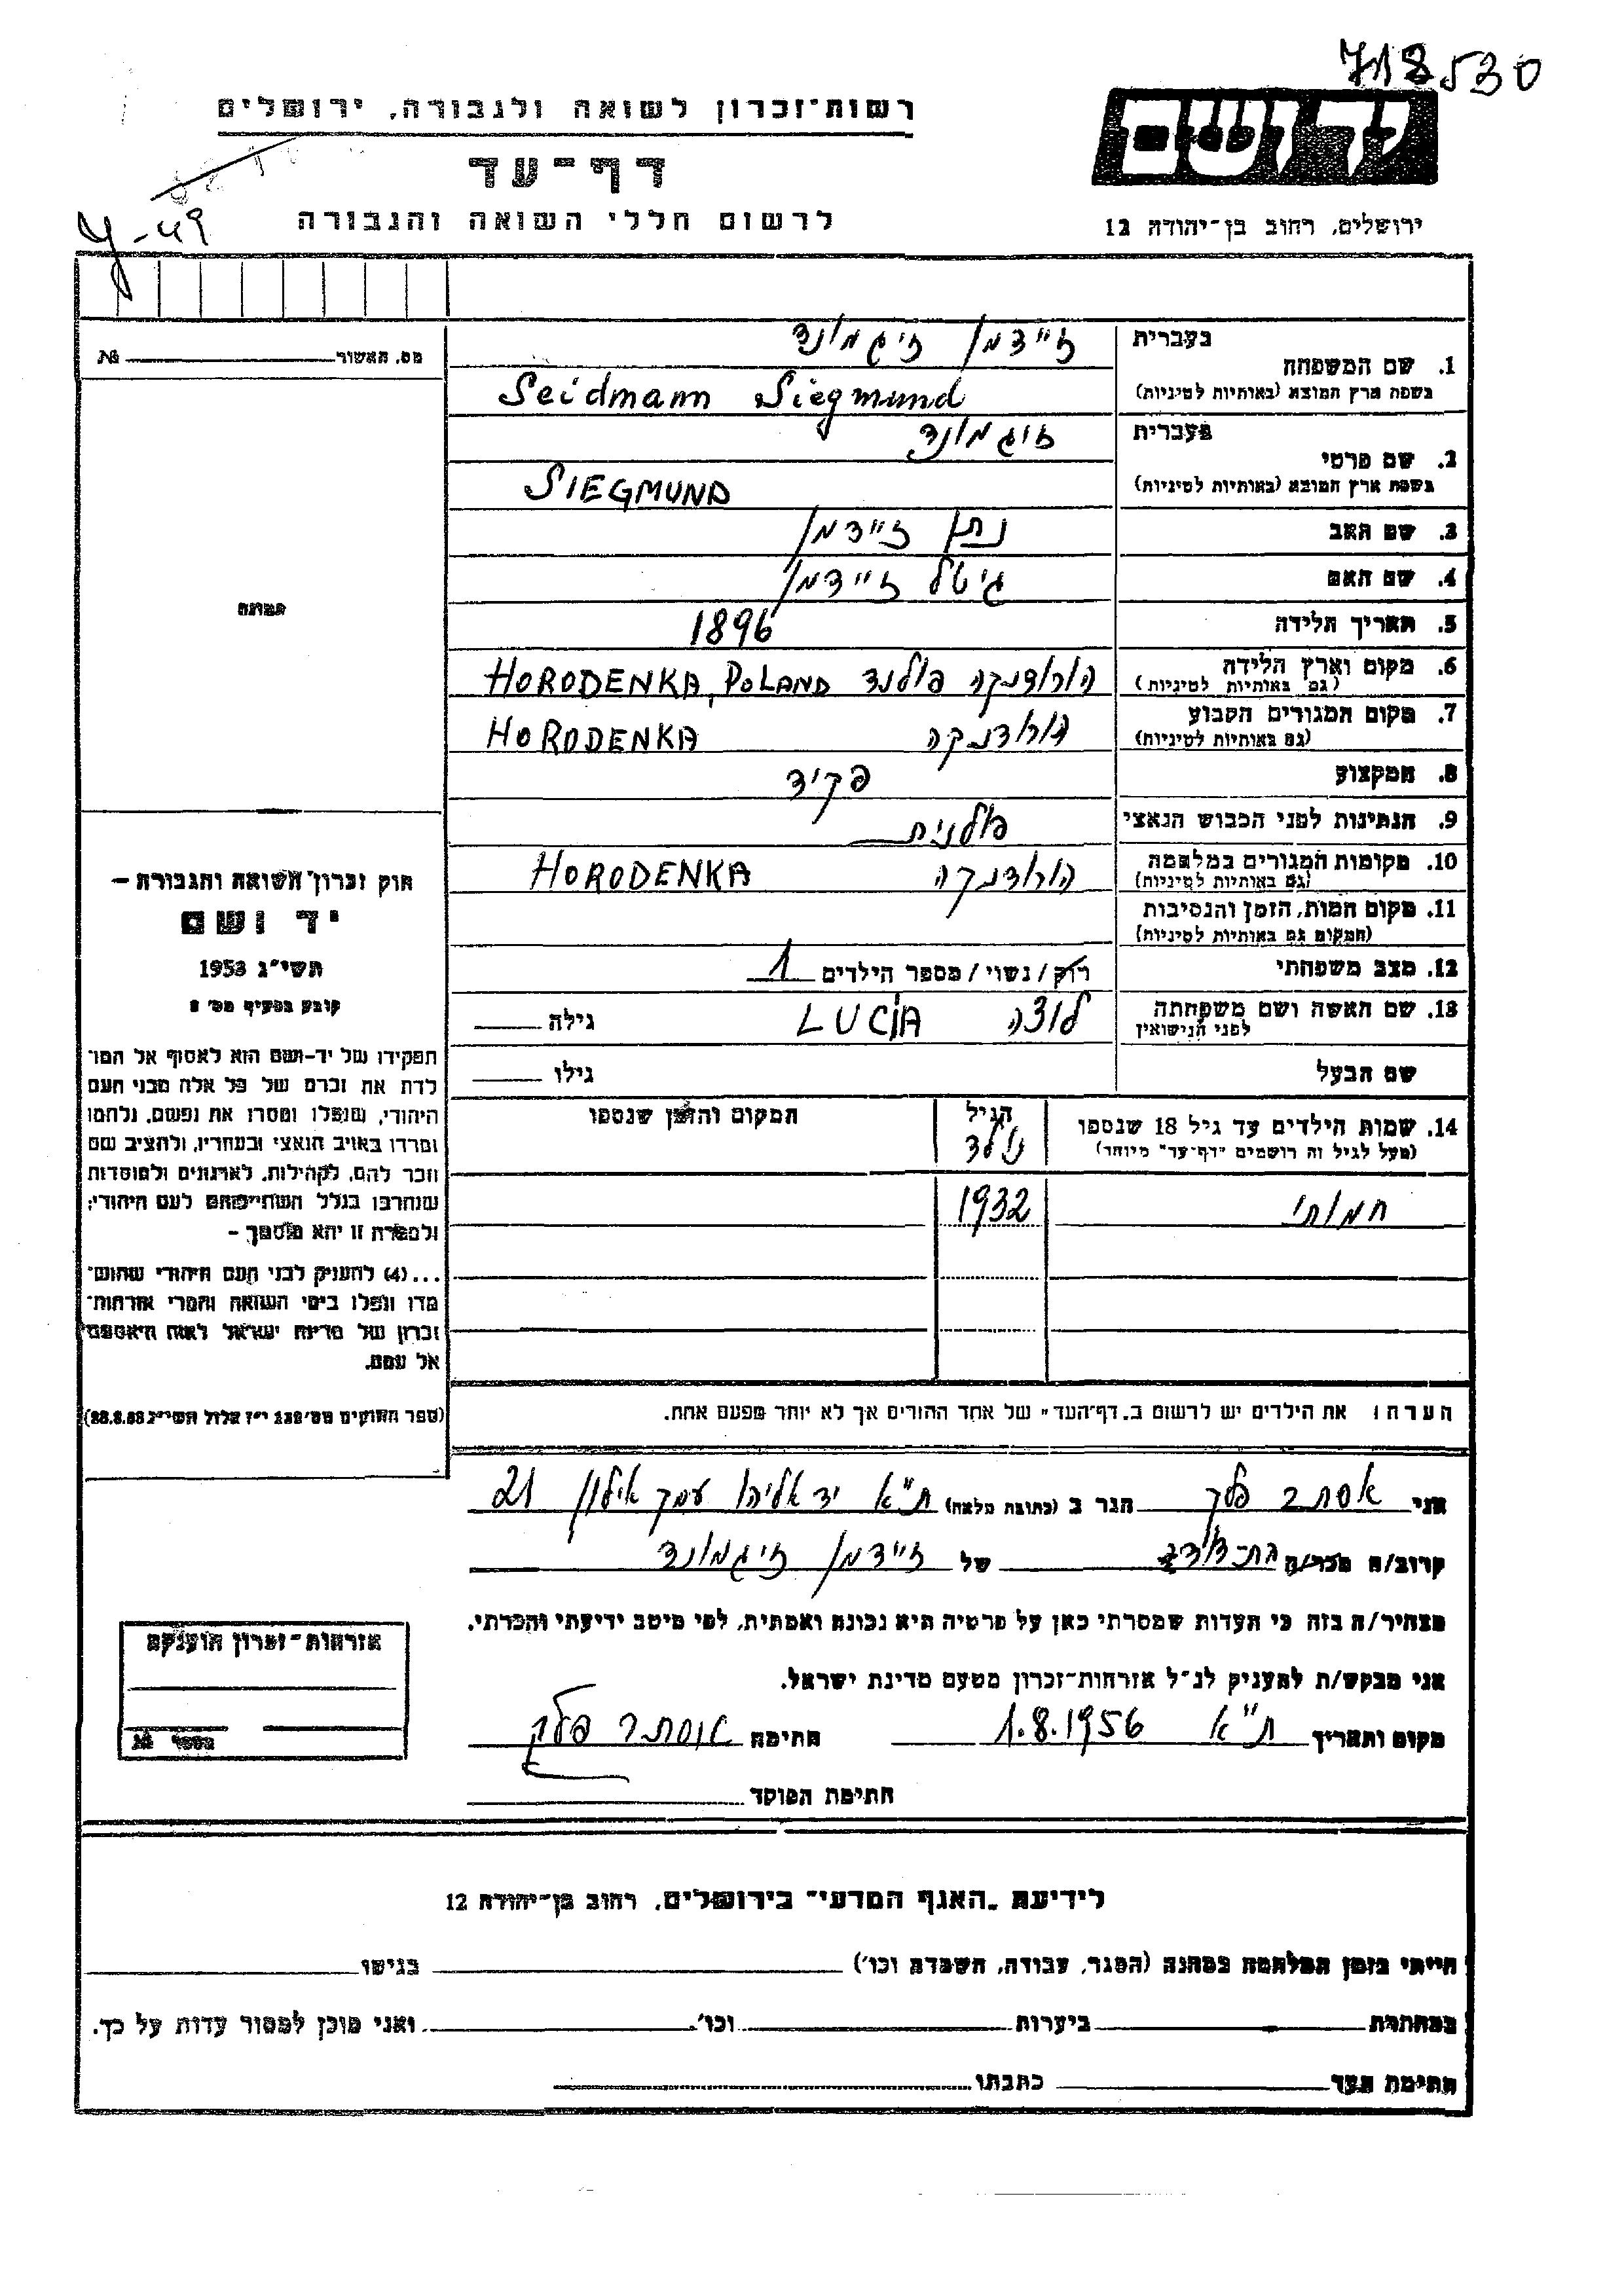 718530
יד ושם
רשות־זכרון לשואה ולגבורה, ירושלים
דף־עד
לרשום חללי השואה והגבורה
ירושלים, רחוב בן־יהודה 12
49
מס. האשור № 
בעברית זיידמן זיגמונד
1. שם המשפחה
בשפת ארץ המוצא (באותיות לטיניות) Seidmann Siegmund
בעברית זיגמונד
2. שם פרטי
בשפת ארץ המוצא (באותיות לטיניות) SIEGMUND
3. שם האב נתן זיידמן
4. שם האם גיטל זיידמן
תמונה
5. תאריך הלידה 1896
6. מקום וארץ הלידה הורודנקה פולנד HORODENKA, POLAND
(גם באותיות לטיניות)
7. מקום המגורים הקבוע הורודנקה HORODENKA
(גם באותיות לטיניות)
8. המקצוע פקיד
9. הנתינות לפני הכבוש הנאצי פולנית
10. מקומות המגורים במלחמה הורודנקה HORODENKA
(גם באותיות לטיניות)
11. מקום המות, הזמן והנסיבות
(המקום גם באותיות לטיניות)
12. מצב משפחתי רוק / נשוי / מספר הילדים 1
13. שם האשה ושם משפחתה לוצה LUCIA גילה
לפני הנישואין
שם הבעל גילו
14. שמות הילדים עד גיל 18 שנספו הגיל המקום והזמן שנספו
(מעל לגיל זה רושמים "דף־עד" מיוחד) נולד
1932
הערה: את הילדים יש לרשום ב„דף־העד" של אחד ההורים אך לא יותר מפעם אחת.
חוק זכרון השואה והגבורה –
יד ושם
תשי"ג 1953
קובע בסעיף מס' 2
תפקידו של יד־ושם הוא לאסוף אל המו־
לדת את זכרם של כל אלה מבני העם
היהודי, שנפלו ומסרו את נפשם, נלחמו
ומרדו באויב הנאצי ובעוזריו, ולהציב שם
וזכר להם, לקהילות, לארגונים ולמוסדות
שנחרבו בגלל השתייכותם לעם היהודי;
ולמטרה זו יהא מוסמך –
...(4) להעניק לבני העם היהודי שהוש־
מדו ונפלו בימי השואה והמרי אזרחות־
זכרון של מדינת ישראל לאות היאספם
אל עמם.
(ספר החוקים מס' 132 י"ז אלול תשי"ג 28.8.53)
אני אסתר פלק הגר ב (כתובת מלאה) ת"א יד אליהו עמק אילון 21
קרוב/ה מכר/ה בת־דודה של זיידמן זיגמונד
מצהיר/ה בזה כי העדות שמסרתי כאן על פרטיה היא נכונה ואמתית, לפי מיטב ידיעתי והכרתי.
אני מבקש/ת להעניק לנ"ל אזרחות־זכרון מטעם מדינת ישראל.
מקום ותאריך ת"א 1.8.1956 חתימה אסתר פלק
חתימת הפוקד
אזרחות־זכרון הוענקה
מספר №
לידיעת „האגף המדעי" בירושלים, רחוב בן־יהודה 12
הייתי בזמן המלחמה במחנה (הסגר, עבודה, השמדה וכו') בגיטו
במחתרת ביערות וכו' ואני מוכן למסור עדות על כך.
חתימת העד כתבתו